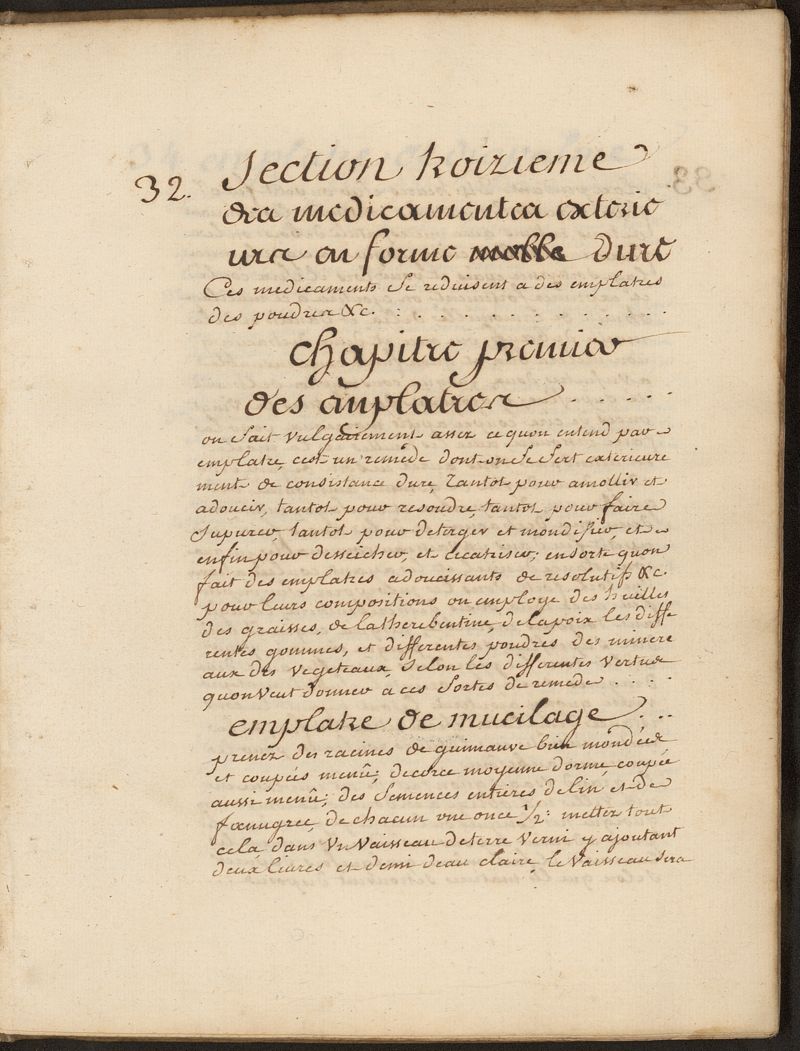 32. Section troizieme
des medicamentes exterie
urs en forme molle dure
Ces medicaments se reduisent a des emplatres
des poudres &c. : . . . . . . . . . . .
chapitre premier
des amplatres . . . . .
on sait vulgairement assez ce quon entend par
emplatre, cest un remede dont on se sert exterieure
ment de consistance dure, tantot pour amollir et
adoucir, tantot pour resoudre, tantot pour faire
supurer, tantot pour deterger et mondifier, et
enfin pour desseicher, et cicatriser; ensorte quon
fait des emplatres adoucissants de resolutifs &c.
pour leurs compositions on employe des huilles
des graisses, de latherebentine, de lapoix les diffe
rentes gommes, et differentes poudres des minere
aux des vegeteaux, selon les differentes vertus
quon veut donner a ces sortes de remede . . . .
emplatre de mucilage . . .
prenez des racines de guimauve bien mondées
et coupées menüe; decorce moyenne dorme, coupée
aussi menüe; des semences entieres de lin et de
fœnugrec, de chacun une once 1/2: mettez tout
cela dans un vaisseau de terre verni y ajoutant
deux livres et demi deau claire, le vaisseau sera